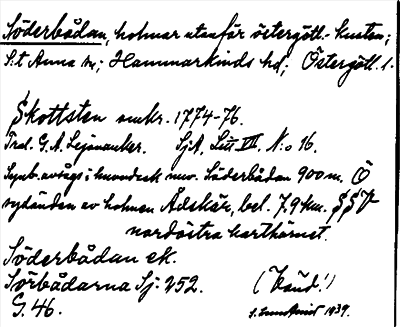 Söderbådan, holmar utanför östergötl.- kusten;
S:t Anna sn; Hammarkinds hd; Östergötl. l.
Skottsten omkr. 1774-76.
Trol. G. A. Leijonancker. SjA, Litt VII, N:o 16.
i huvudsak nuv. Söderbådan 900 m. Ö
sydänden av holmen Ådskär, bel. 7,9 km. SSV
nordöstra karthörnet.
Söderbådan ek.
Sörbådarna Sj: 252. (Känd!)
G. 46. 1939.